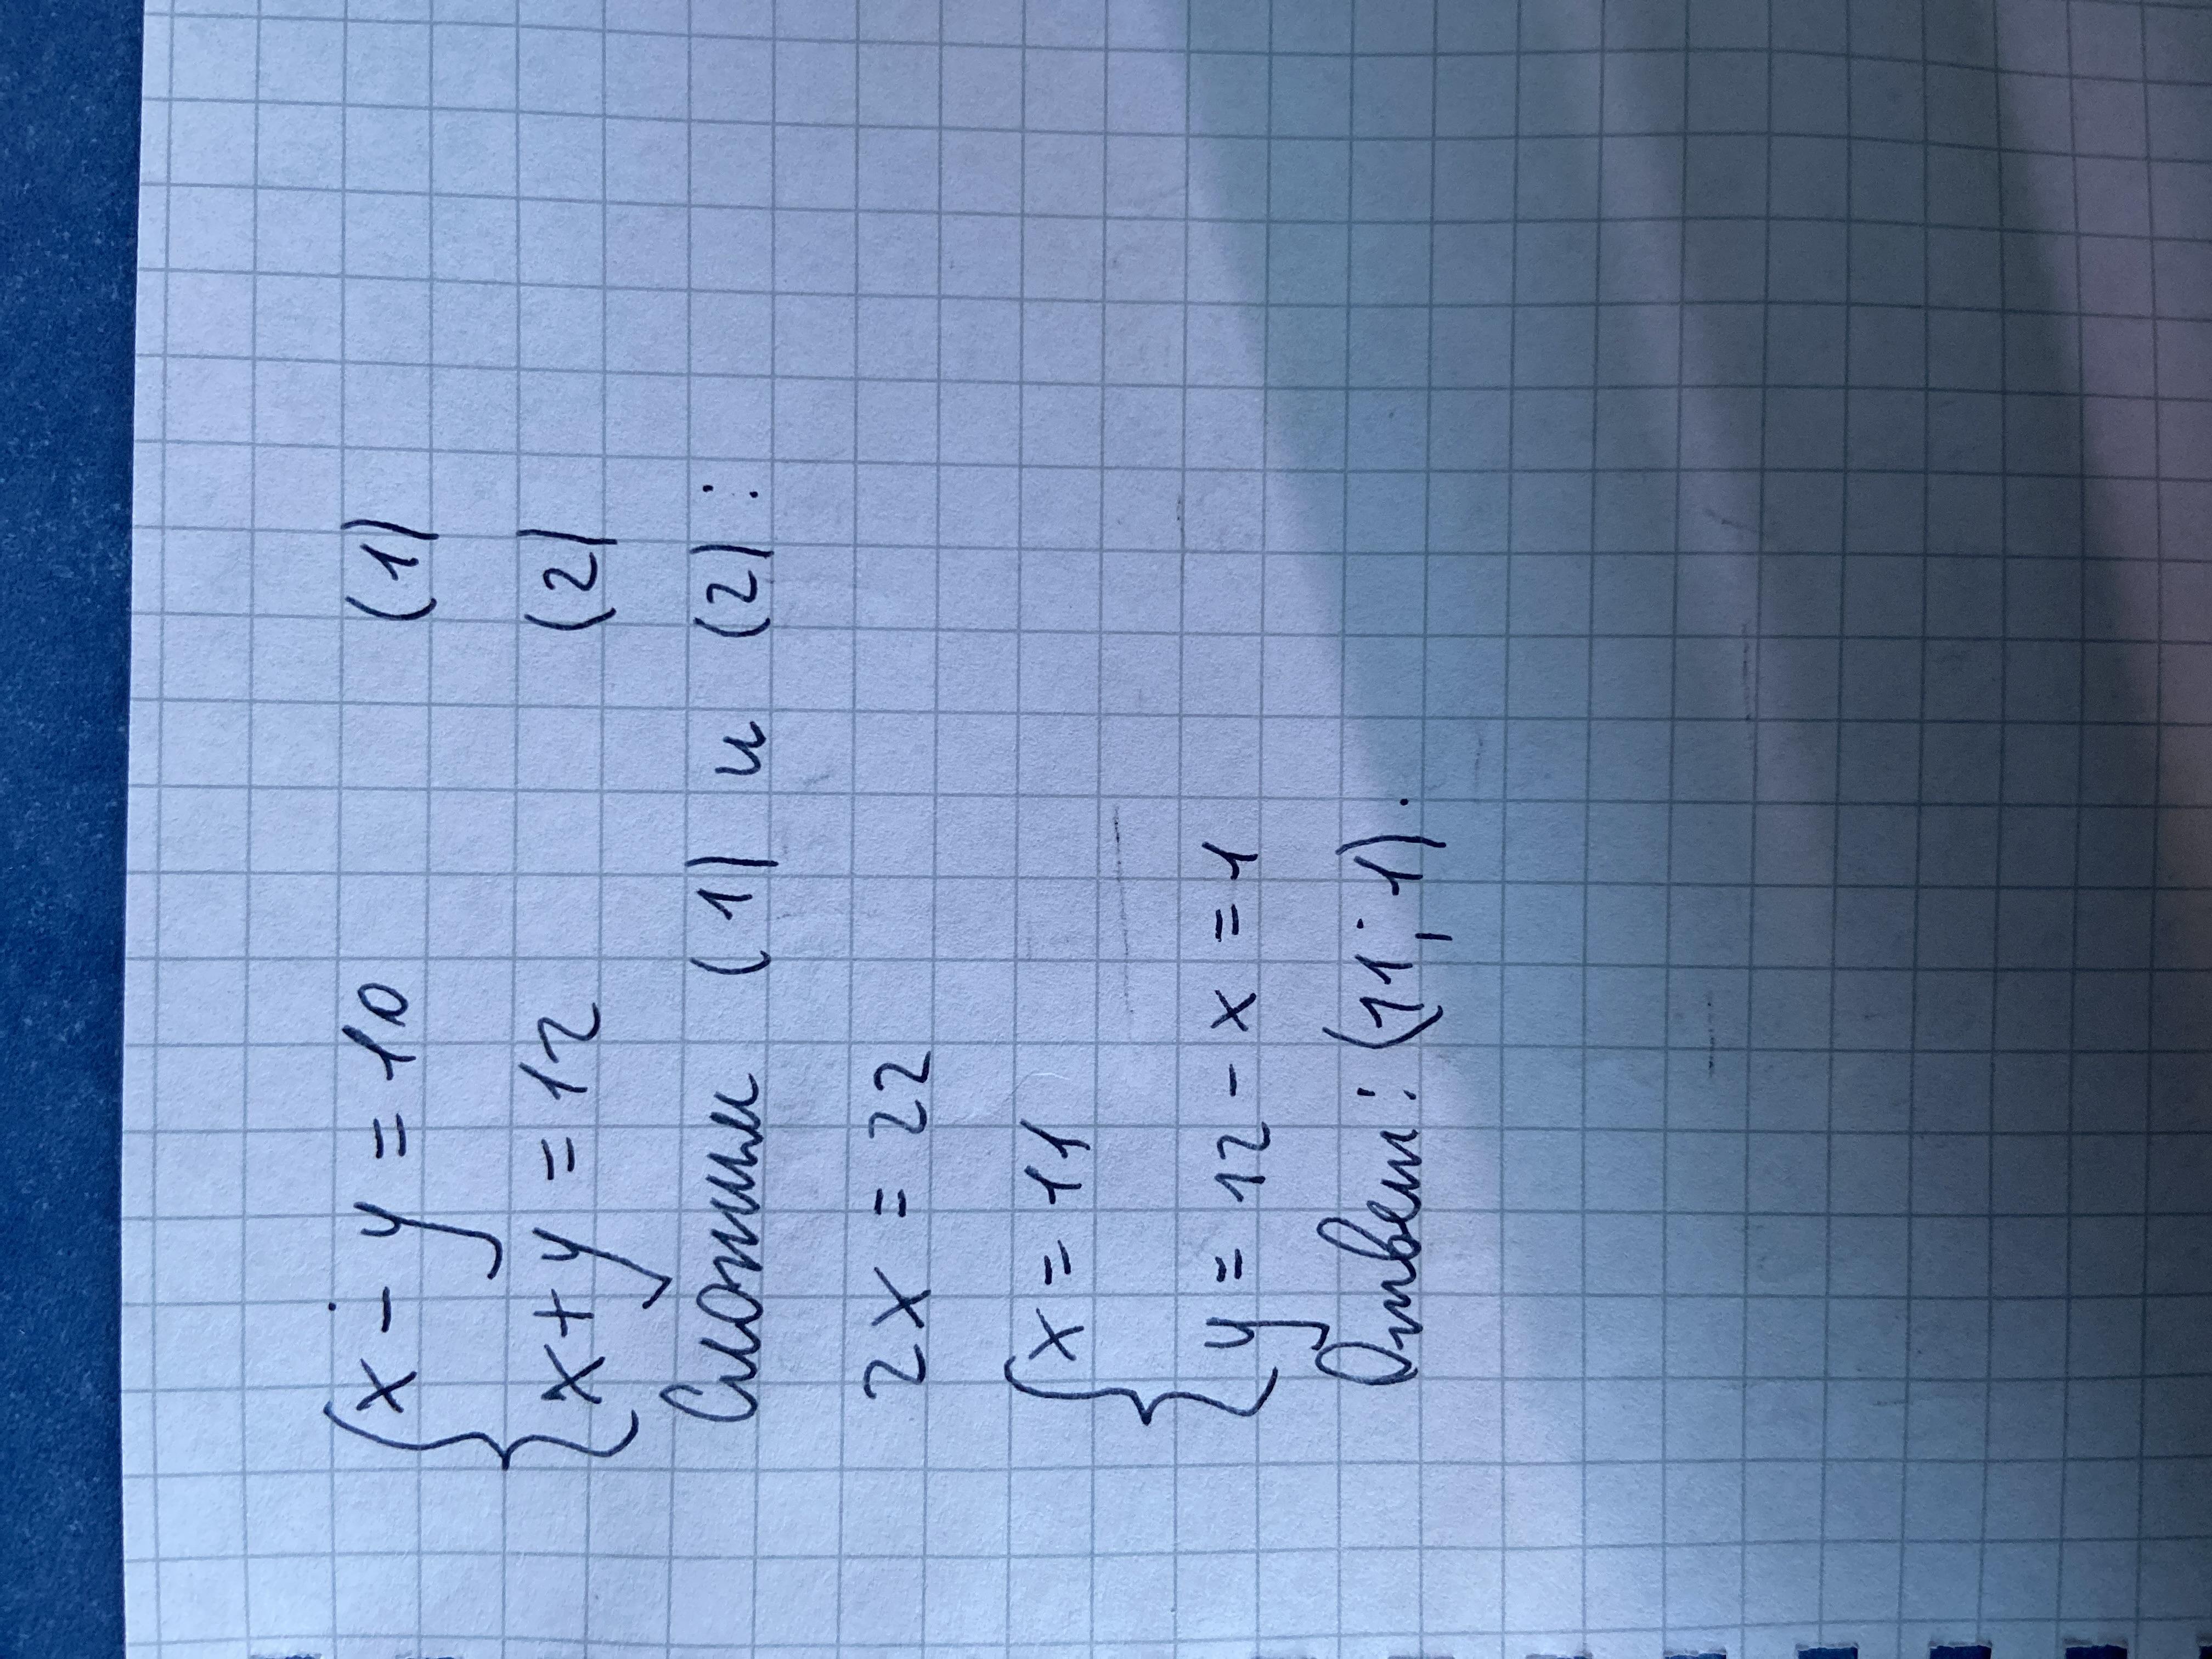 { x - y = 10 (1)
x + y = 12 (2)
Сложим (1) и (2):
2x = 22
{ x = 11
y = 12 - x = 1
Ответ: (11; 1).